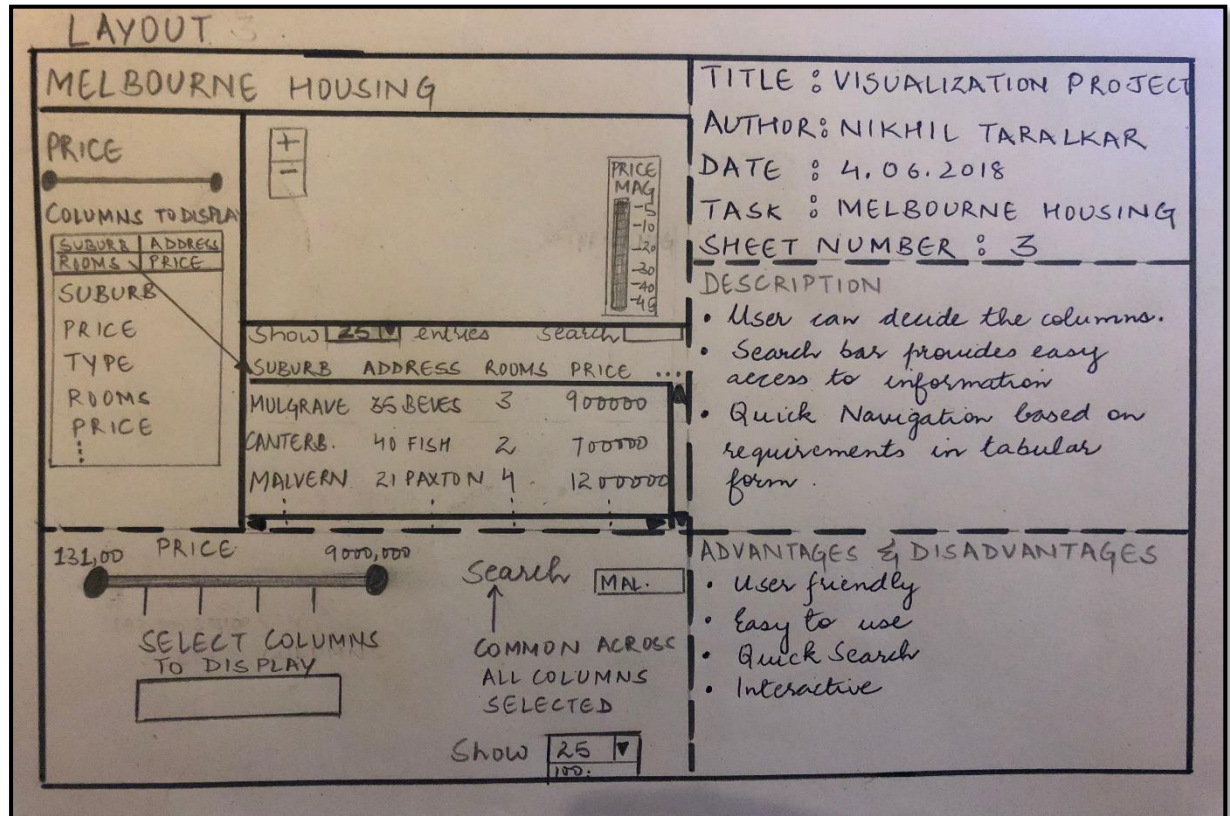 LAYOUT 3
MELBOURNE HOUSING
PRICE
COLUMNS TO DISPLAY
SUBURB ADDRESS
ROOMS PRICE
SUBURB
PRICE
TYPE
ROOMS
PRICE
+
-
PRICE
MAG
-5
-10
-20
-30
-40
-49
Show 25 entries Search
SUBURB ADDRESS ROOMS PRICE ...
MULGRAVE 35 BEVES 3 900000
CANTERB. 40 FISH 2 700000
MALVERN 21 PAXTON 4 1200000
131,00 PRICE 9000,000
SELECT COLUMNS
TO DISPLAY
Search MAL.
COMMON ACROSS
ALL COLUMNS
SELECTED
Show 25
100.
TITLE : VISUALIZATION PROJECT
AUTHOR: NIKHIL TARALKAR
DATE : 4.06.2018
TASK : MELBOURNE HOUSING
SHEET NUMBER : 3
DESCRIPTION
• User can decide the columns.
• Search bar provides easy
access to information
• Quick Navigation based on
requirements in tabular
form.
ADVANTAGES & DISADVANTAGES
• User friendly
• Easy to use
• Quick Search
• Interactive